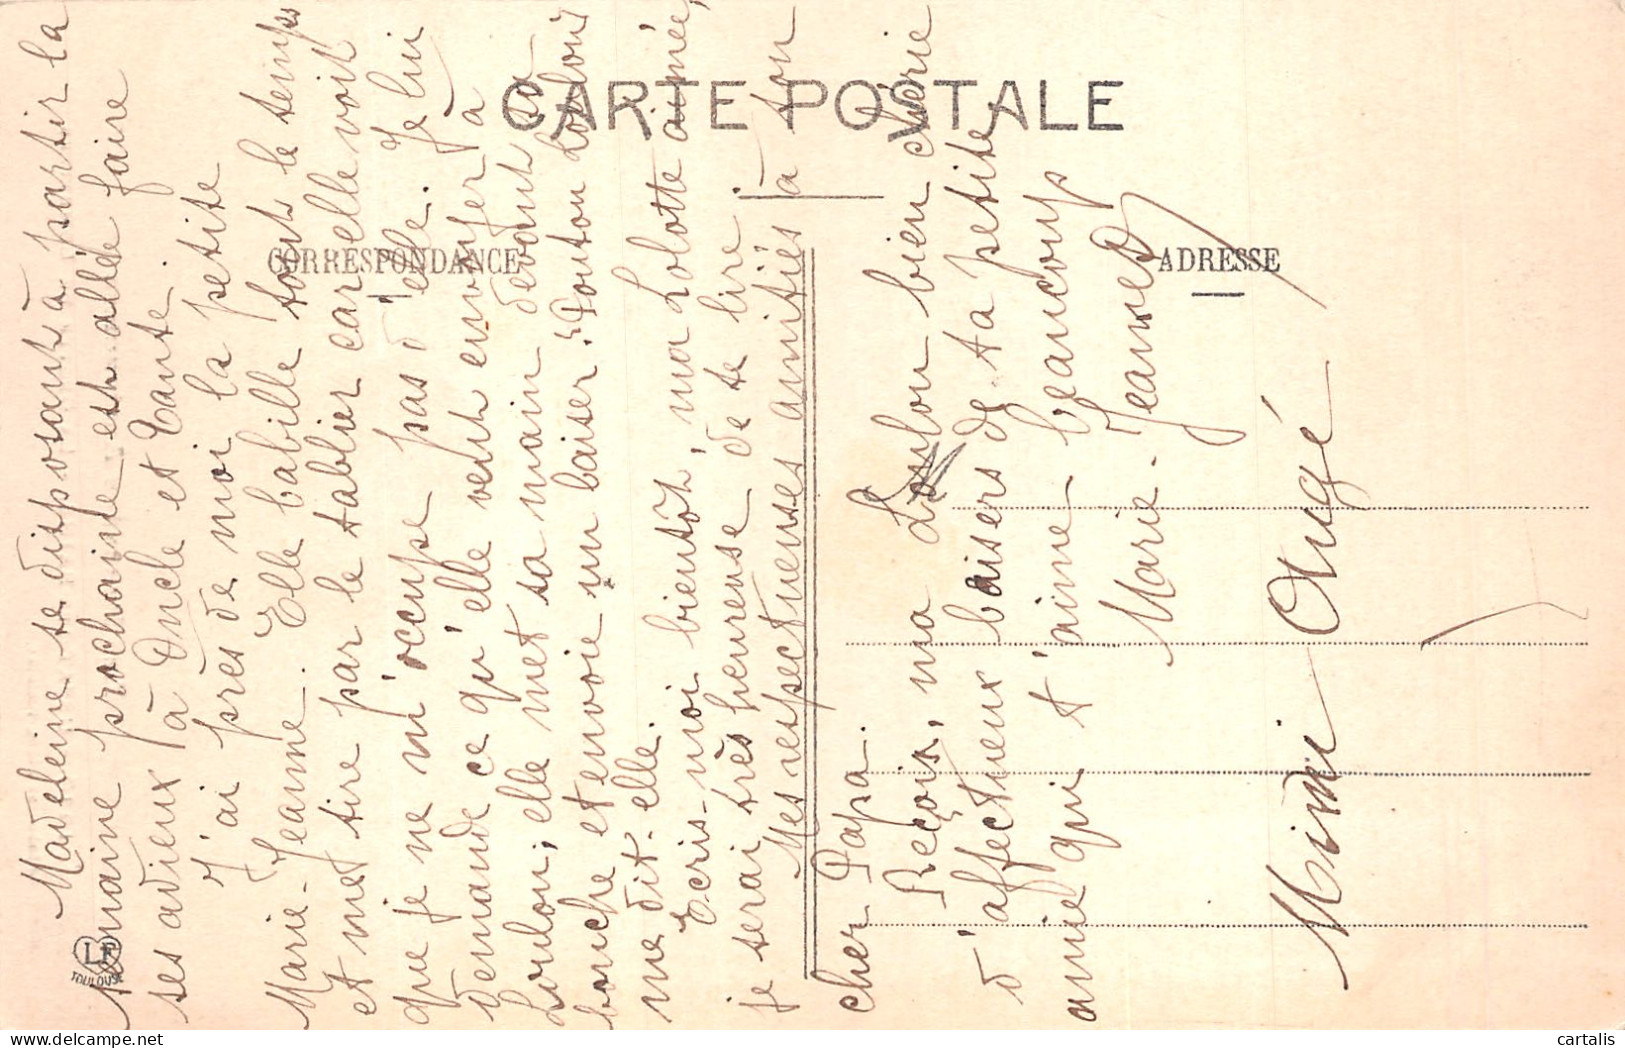 CARTE POSTALE
CORRESPONDANCE
ADRESSE
Madeleine se disposant à partir la
semaine prochaine est allée faire
ses adieux à Oncle et Tante.
J'ai près de moi la petite
Marie-Jeanne. Elle babille tout le temps
et met tire par le tablier car elle voit
que je ne m'occupe pas d'elle. Je lui
demande ce qu'elle veut envoyer à
Loulou, elle met sa main devant sa
bouche et envoie un baiser. "Pouton Loulou"
me dit-elle.
Ecris-moi bientôt, ma Lolotte aimée,
je serai très heureuse de te lire.
Mes respectueuses amitiés à ton
cher Papa.
Reçois, ma Loulou bien chérie
d'affectueux baisers de ta petite
amie qui t'aime beaucoup
Marie-Jeanne
Mimi Augé
LF
TOULOUSE
cartalis
delcampe.net